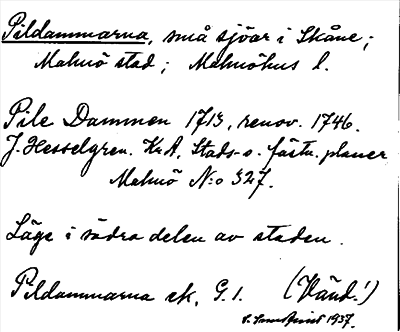 Pildammarna, små sjöar i Skåne;
Malmö stad; Malmöhus l.
Pile Dammen 1713, renov. 1746.
J. Hesselgren. Kr A, Stads- o. fästn. planer
Malmö N:o 327.
Läge i södra delen av staden.
Pildammarna ek. G. 1. (Vänd!)
1937.